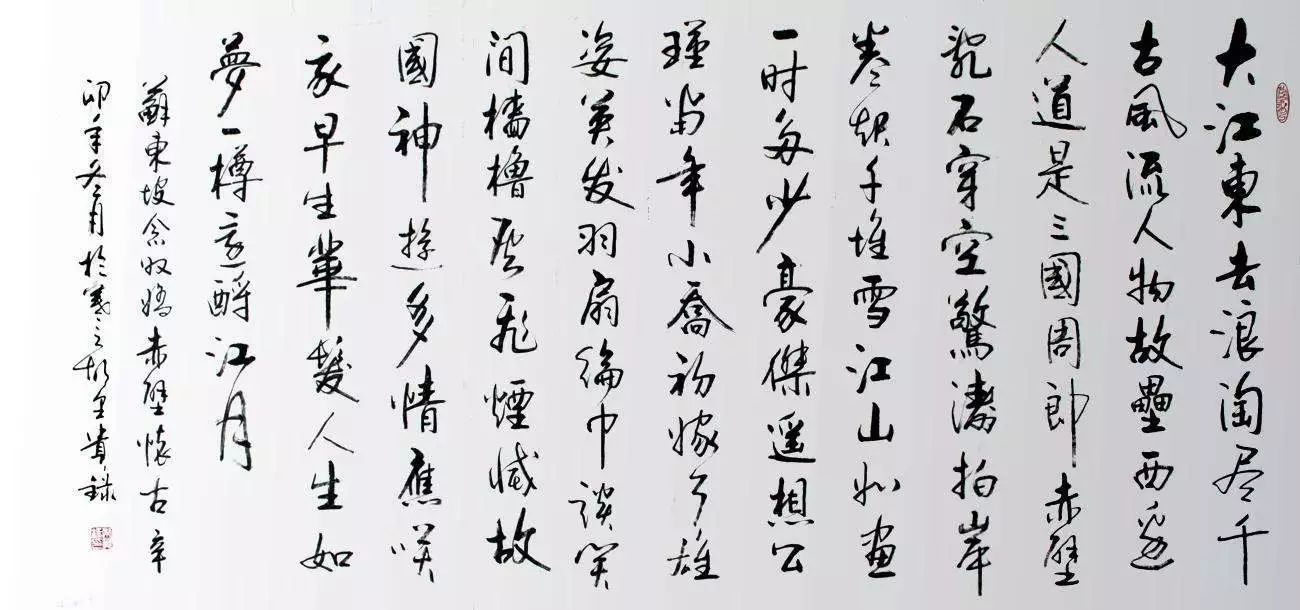 大江東去浪淘尽千
古風流人物故壘西邊
人道是三國周郎赤壁
乱石穿空驚濤拍岸
卷起千堆雪江山如畫
一时多少豪傑遥想公
瑾当年小喬初嫁了雄
姿英发羽扇綸巾談笑
间檣櫓灰飛煙滅故
國神遊多情應咲
我早生華髮人生如
夢一樽還酹江月
蘇東坡念奴嬌赤壁懷古辛
卯年冬月於羲之故里貴録